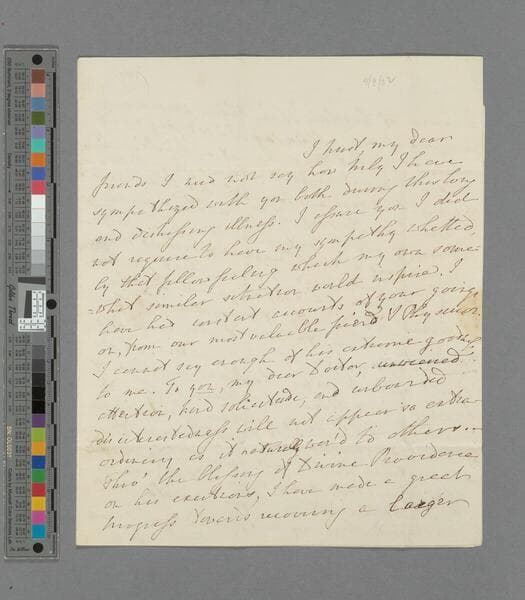 I trust my dear
friends I need not say how truly I have
sympathized with you both during this long
and distressing illness. I assure you I did
not require to have my sympathy whetted
by that fellow feeling which my own some=
=what similar situation would inspire. I
have had constant accounts of your going
on, from our most valuable friend & Physician.
I cannot say enough of his extreme goodness
to me. To you, my dear Doctor,
attention, kind solicitude, and unbounded
disinterestedness will not appear so extra-
ordinary as it naturally would to others.—
Thro' the blessing of Divine Providence
on his exertions, I have made a great
progress towards recovering a larger